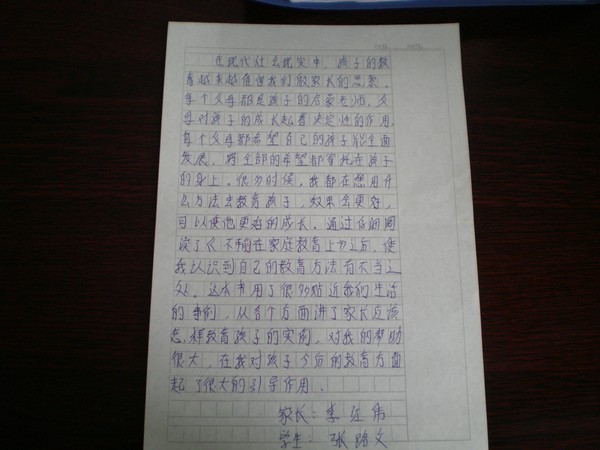 在现代社会现实中，孩子的教
育越来越值得我们做家长的思索。
每个父母都是孩子的启蒙老师，父
母对孩子的成长起着决定性的作用。
每个父母都希望自己的孩子能全面
发展，将全部的希望都寄托在孩子
的身上。很多时候，我都在想用什
么方法去教育孩子，效果会更好，
可以使他更好的成长。通过仔细阅
读了《不输在家庭教育上》之后，使
我认识到自己的教育方法有不当之
处。这本书用了很多贴近我们生活
的事例，从各个方面讲了家长应该
怎样教育孩子的实例，对我的帮助
很大，在我对孩子今后的教育方面
起了很大的引导作用。
家长：李红伟
学生：张路文